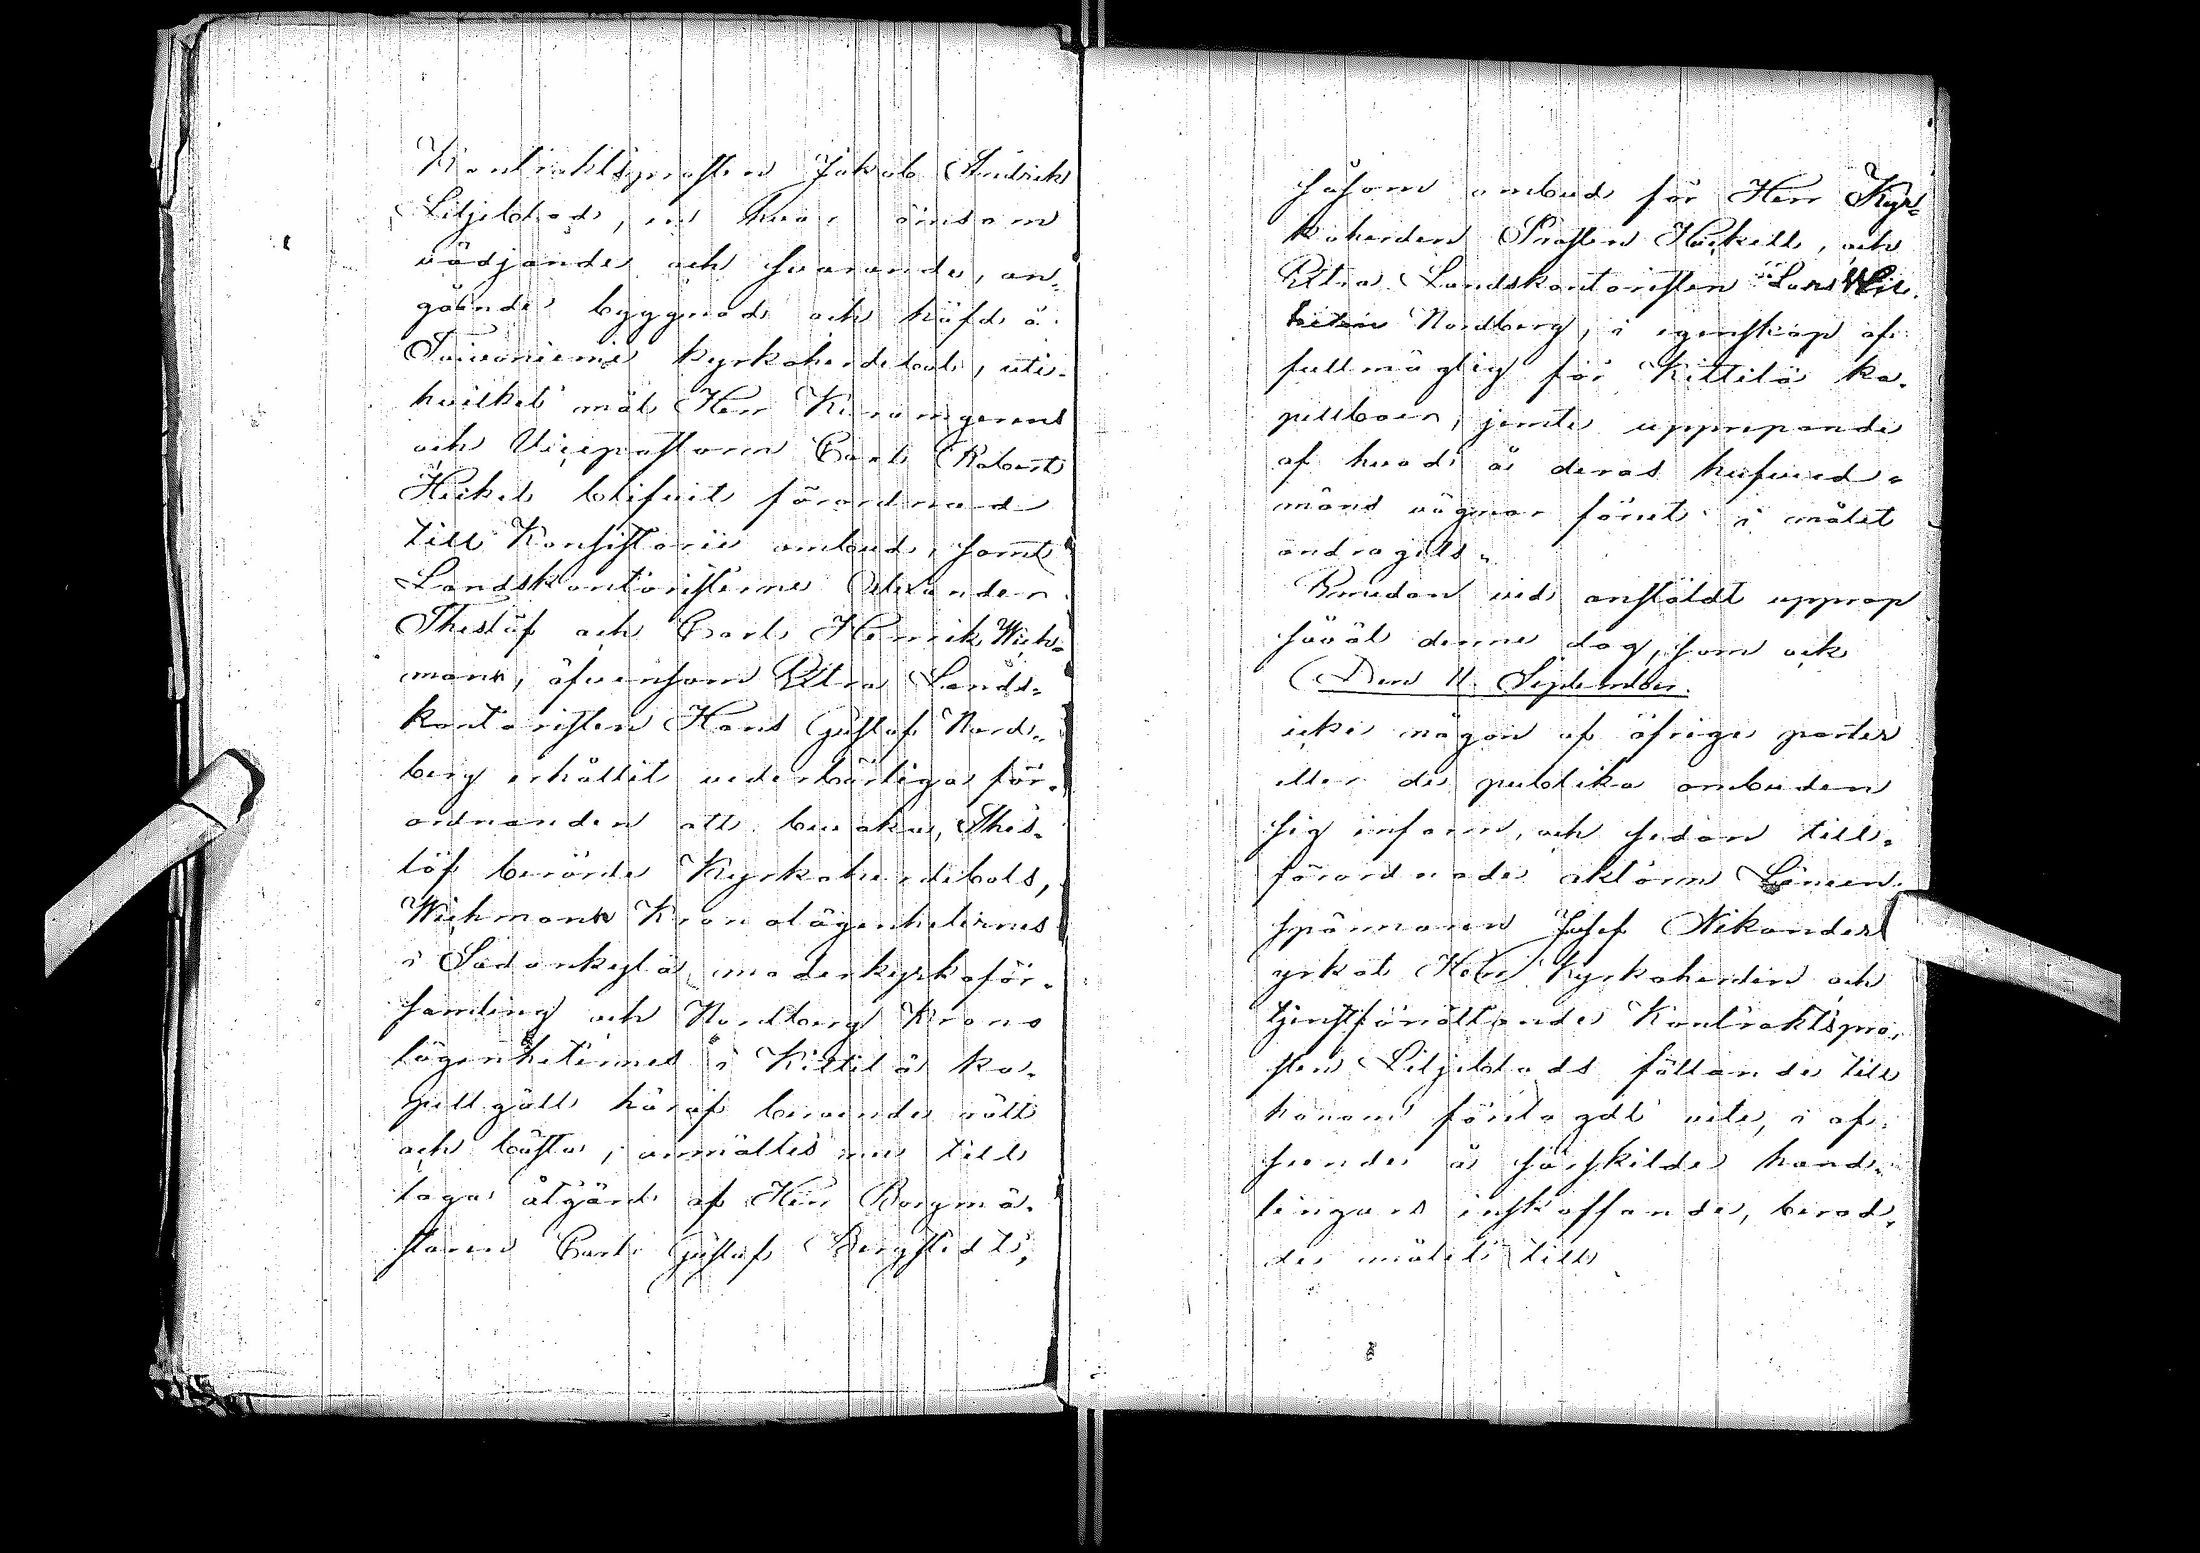 Kontraktsprosten Jakob Hendrik
Liljeblad, en hvar ömsom
vädjande och svarande, an-
gående byggnad och häfd å
Toivoniemi kyrkoherdebol, uti
hvilket mål Herr Kiromgerens
och Vicepastorn Carl Robert
Heikel blifvit förordnad
till Konsistorii ombud, samt
Landskontoristerne Alexander
Theslöf och Carl Henrik Wich-
mann, äfvensom Extra Lands-
kontoristen Hans Gustaf Nord-
berg erhållit vederbörliga för-
ordnanden att bevaka, Thes-
löf berörde Kyrkoherdebols,
Wichmann Kronolägenheternes
i Sodankylä moderkyrkoför-
samling och Nordberg Krono
lägenheternes i Kittilä ka-
pellgäll häraf beroende rätt
och bästa, anmältes nu till
laga åtgärd af Herr Borgmä-
staren Carl Gustaf Bergstedt,
såsom ombud för Herr Kyr-
koherden Prosten Heikell, och
Extra Landskontoristen Lars Wil-
helm Nordberg, i egenskap af
fullmägtig för Kittilä ka-
pellboer, jemte upprepande
af hvad å deras hufvud-
mäns vägnar förut i målet
andragits.
Emedan vid anstäldt upprop
såväl denne dag, som ock
Den 11 September.
icke någon af öfrige parter
eller de publika ombuden
sig infann, och sedan till-
förordnade aktorn Länsm
spännaren Josef Nikander
yrkat Herr Kyrkoherden och
tjenstförrättande Kontraktspro-
sten Liljeblads fällande till
honom förelagdt vite, i af-
seende å särskilde hand-
lingars inskaffande, berod-
de målet till